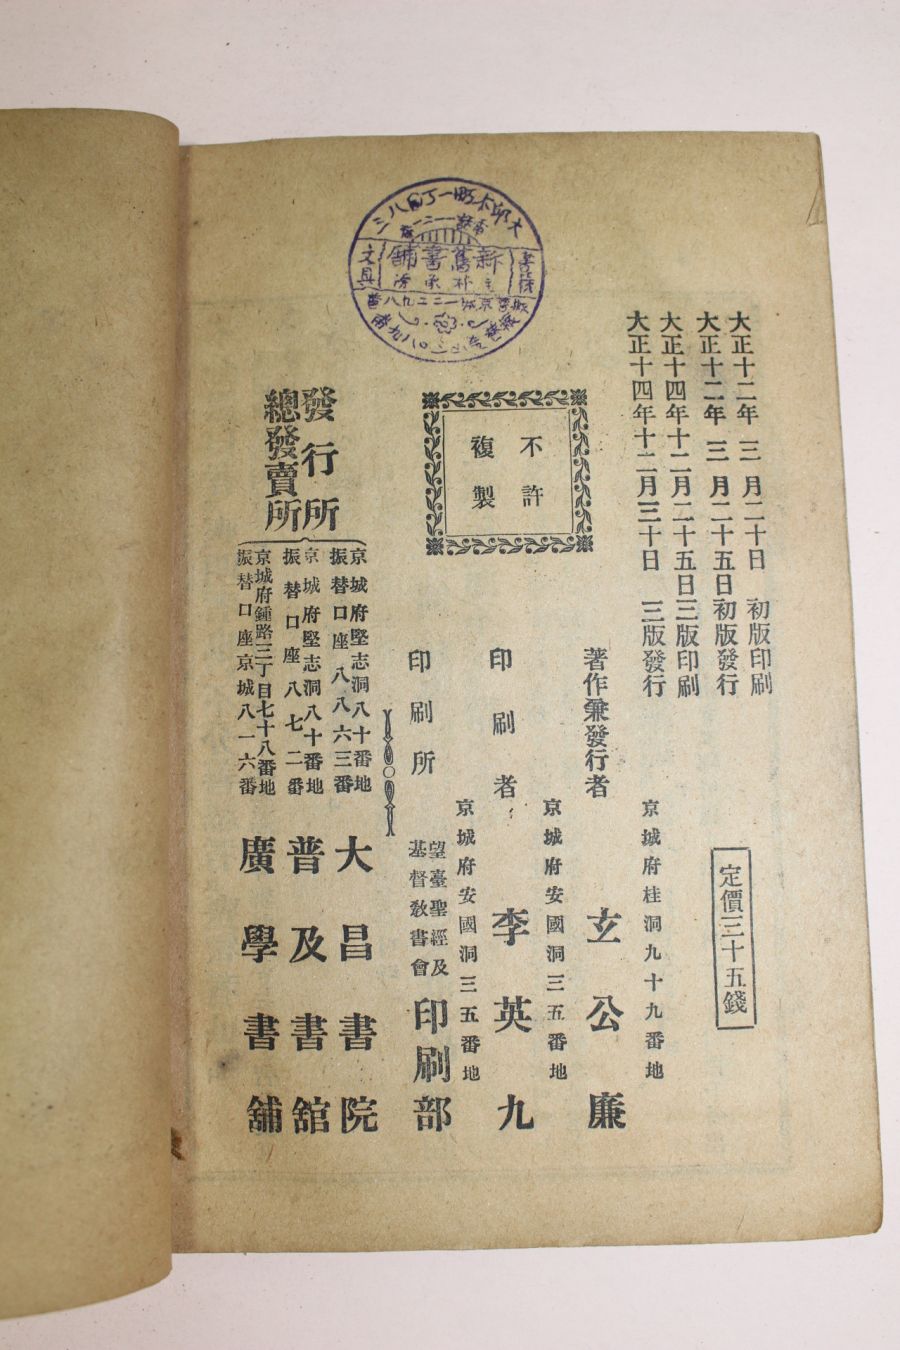 大正十二年 三 月二十日 初版印刷
大正十二年 三 月二十五日初版發行
大正十四年十二月二十五日三版印刷
大正十四年十二月三十日 三版發行
定價三十五錢
不許
複製
京城府桂洞九十九番地
著作兼發行者 玄公廉
京城府安國洞三五番地
印刷者 李英九
京城府安國洞三五番地
印刷所 望臺聖經及
基督敎書會 印刷部
發行所
總發賣所
京城府堅志洞八十番地
振替口座八八六三番
大昌書院
京城府堅志洞八十番地
振替口座八七二番
普及書館
京城府鍾路三丁目七十八番地
振替口座京城八一六番
廣學書舖
新舊書舖
文具